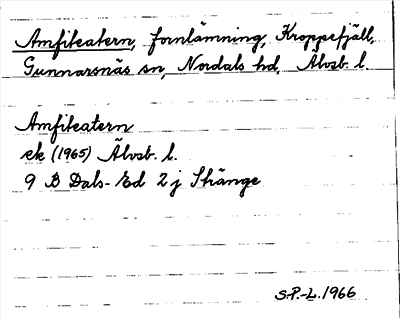 Amfiteatern, fornlämning, Kroppefjäll,
Gunnarsnäs sn, Nordals hd, Älvsb. l.
Amfiteatern
ek (1965) Älvsb. l.
9 B Dals-Ed 2 j Skänge
S.P.-L. 1966